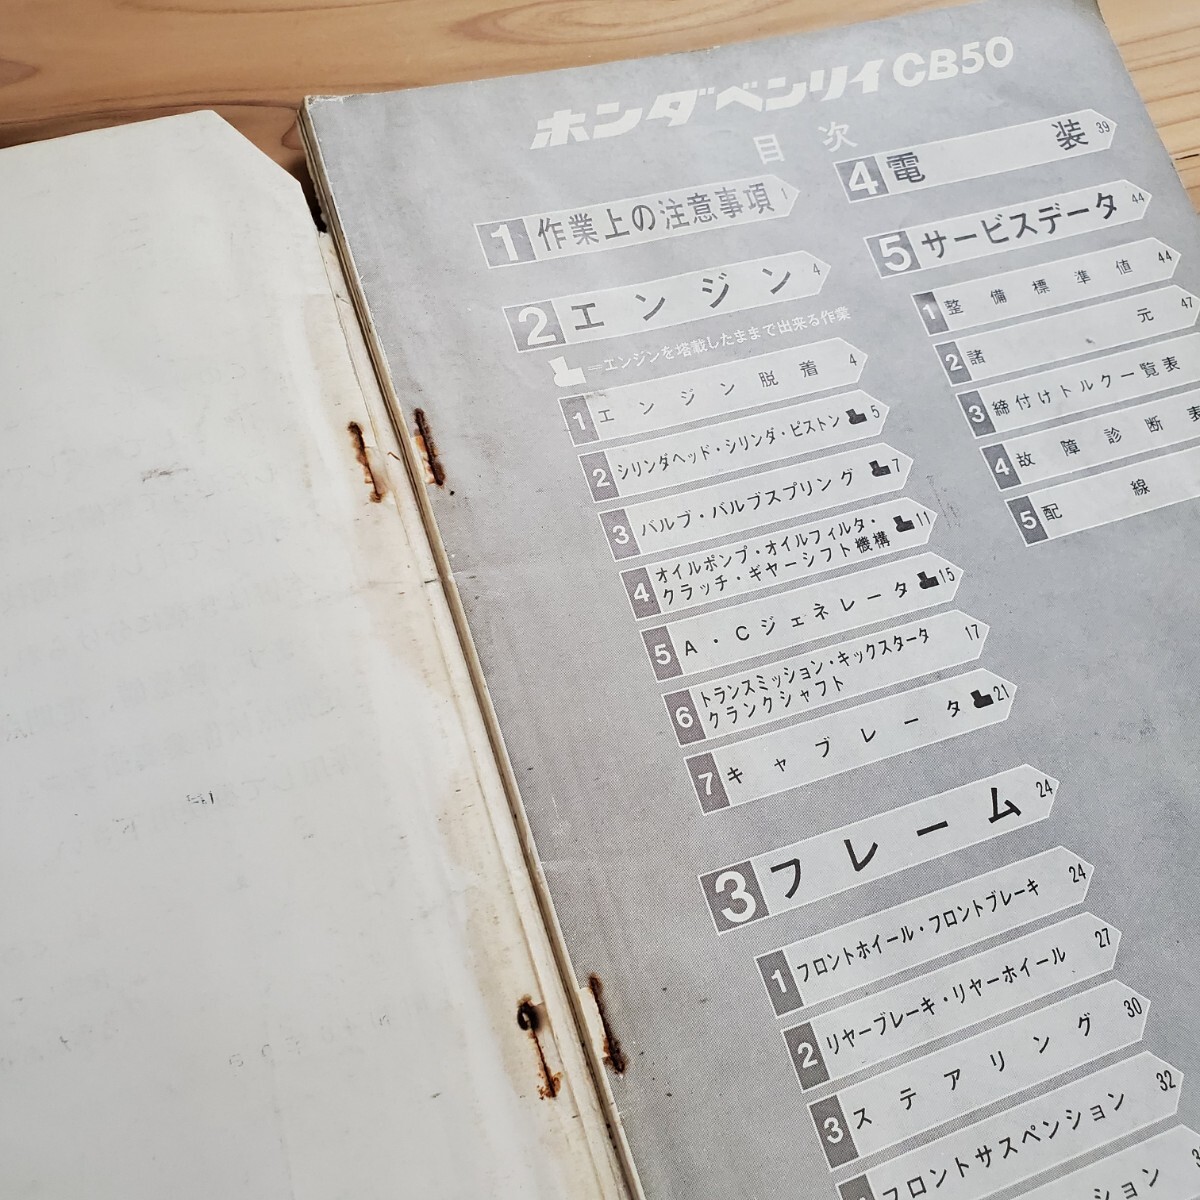 ホンダベンリイCB50
目次
1 作業上の注意事項 1
2 エンジン 4
=エンジンを塔載したままで出来る作業
1 エンジン脱着 4
2 シリンダヘッド・シリンダ・ピストン 5
3 バルブ・バルブスプリング 7
4 オイルポンプ・オイルフィルタ・
クラッチ・ギヤーシフト機構 11
5 A・Cジェネレータ 15
6 トランスミッション・キックスタータ 17
クランクシャフト
7 キャブレータ 21
3 フレーム 24
1 フロントホイール・フロントブレーキ 24
2 リヤーブレーキ・リヤーホイール 27
3 ステアリング 30
フロントサスペンション 32
ション
4 電装 39
5 サービスデータ 44
1 整備標準値 44
2 諸元 47
3 締付けトルク一覧表
4 故障診断表
5 配線